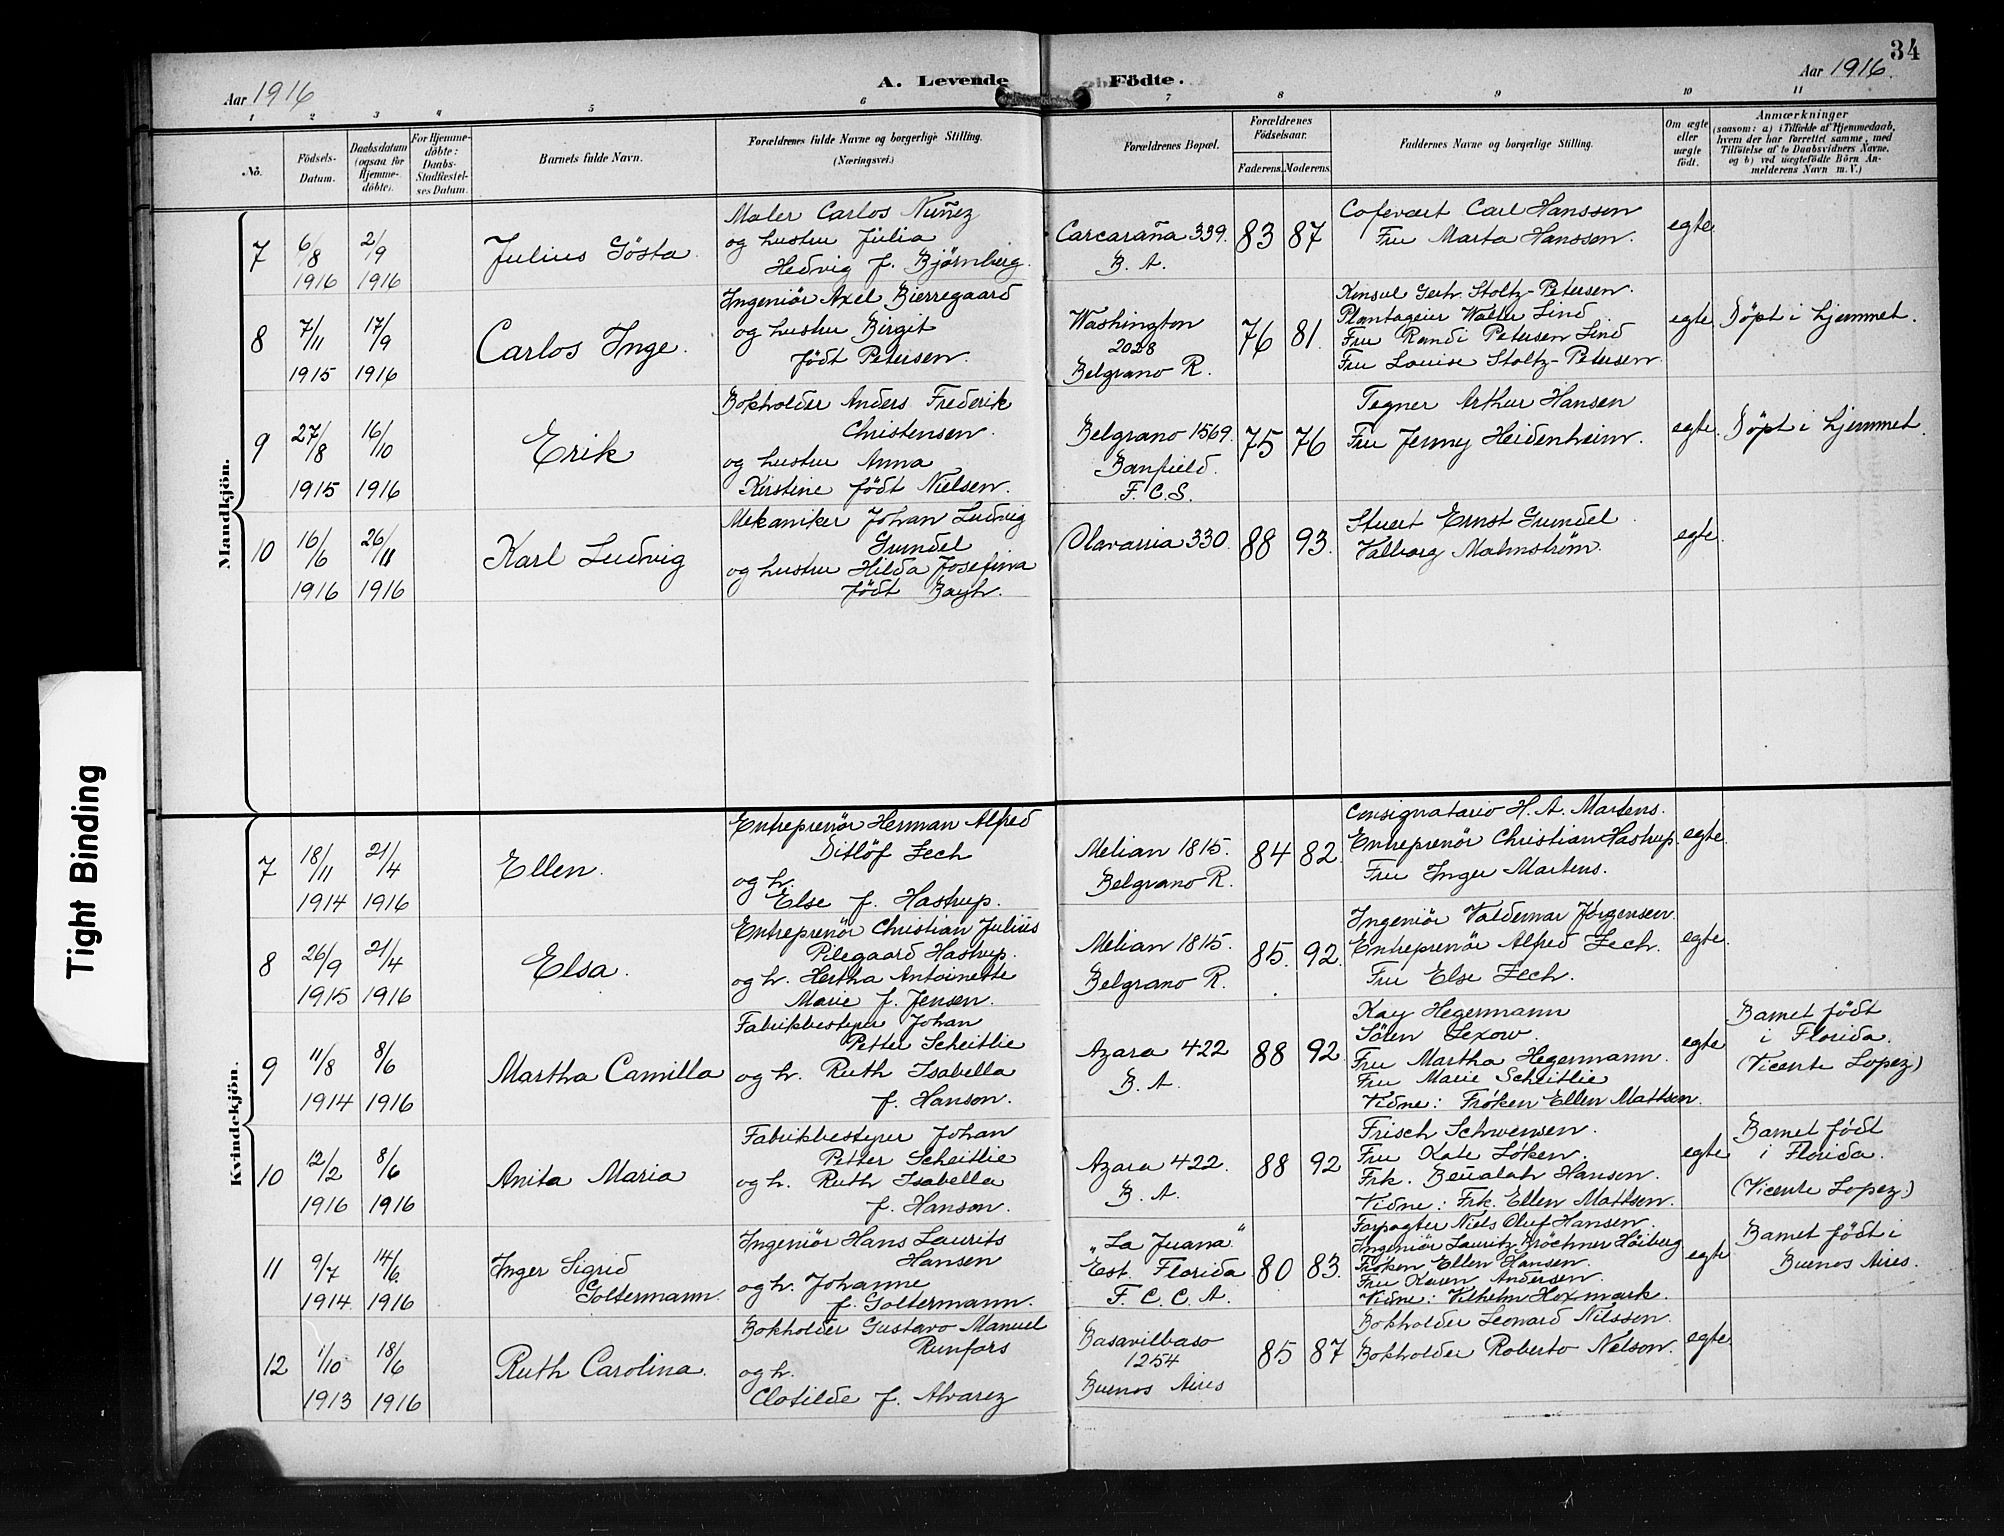 34
Aar 1916
A. Levende Födte.
Aar 1916.
1 2 3 4 5 6 7 8 9 10 11
No.
Födsels-
Datum.
Daabsdatum
(ogsaa for
Hjemme-
döbte).
For Hjemme-
döbte:
Daabs-
Stadfæstel-
ses Datum.
Barnets fulde Navn.
Forældrenes fulde Navne og borgerlige Stilling.
(Næringsvei.)
Forældrenes Bopæl.
Forældrenes
Födselsaar.
Faderens. Moderens.
Faddernes Navne og borgerlige Stilling.
Om ægte
eller
uægte
födt.
Anmærkninger
(saasom: a) i Tilfælde af Hjemmedaab,
hvem der har forrettet samme, med
Tilföielse af to Daabsvidners Navne,
og b) ved uægtefödte Börn An-
melderens Navn m. V.)
Mandkjön.
7
6/8
1916
2/9
1916
Julius Gösta
Maler Carlos Nuñez
og hustru Julia
Hedvig f. Bjørnberg.
Carcaraña 339.
B. A.
83 87
Cafevært Carl Hanssen
Fru Marta Hanssen.
egte
8
7/11
1915
17/9
1916
Carlos Inge.
Ingeniör Axel Bierregaard
og hustru Birgit
födt Petersen.
Washington
2028
Belgrano R.
76 81.
Konsul Gerh. Stoltz-Petersen.
Plantageier Walter Lind
Fru Randi Petersen Lind
Fru Louise Stoltz-Petersen
egte
Döpt i hjemmet.
9
27/8
1915
16/10
1916
Erik
Bokholder Anders Frederik
Christensen.
og hustru Anna
Kirstine födt Nielsen.
Belgrano 1569.
Banfield.
F. C. S.
75 76
Tegner Arthur Hansen
Fru Jenny Heidenheim.
egte.
Döpt i hjemmet
10
16/6
1916
26/11
1916
Karl Ludvig
Mekaniker Johan Ludvig
Grundel
og hustru Hilda Josefina
födt Bayh.
Olavarria 330.
88 93.
Stuert Ernst Grundel
Valborg Malmström.
egte.
Kvindekjön.
7
18/11
1914
21/4
1916
Ellen.
Entreprenör Herman Alfred
Ditlöf Zech
og h.
Else f. Hastrup.
Melian 1815.
Belgrano R.
84 82.
Consignatario H. A. Martens.
Entreprenör Christian Hastrup
Fru Inger Martens.
egte.
8
26/9
1915
21/4
1916
Elsa.
Entreprenör Christian Julius
Pilegaard Hastrup.
og h. Hertha Antoinette
Marie f. Jensen.
Melian 1815.
Belgrano R.
85. 92.
Ingeniör Valdemar Jørgensen
Entreprenör Alfred Zech.
Fru Else Zech.
egte.
9
11/8
1914
8/6
1916
Martha Camilla
Fabrikbestyrer Johan
Petter Scheitlie
og h. Ruth Isabella
f. Hanson.
Azara 422
B. A.
88 92.
Kay Hegermann
Sören Lexow.
Fru Martha Hegermann.
Fru Marie Scheitlie
Vidne: Frøken Ellen Mattsen.
egte
Barnet födt
i Florida.
(Vicente Lopez)
10
12/2
1916
8/6
1916
Anita Maria
Fabrikbestyrer Johan
Petter Scheitlie
og h. Ruth Isabella
f. Hanson.
Azara 422.
B. A.
88 92
Frisch Schwensen.
Fru Kate Løken.
Frk. Beualah Hanson.
Vidne: Frk. Ellen Mattsen.
egte
Barnet födt
i Florida.
(Vicente Lopez)
11
9/7
1914
14/6.
1916
Inger Sigrid
Goltermann.
Ingeniör Hans Laurits
Hansen
og h. Johanne
f. Goltermann.
„La Juana"
Est. Florida
F. C. C. A.
80 83.
Forpagter Niels Oluf Hansen.
Ingeniör Lauritz Bröchner Höiberg
Frøken Ellen Hansen.
Fru Karen Andersen.
Vidne: Vilhelm Hoxmark.
egte
Barnet födt i
Buenos Aires.
12
1/10
1913
18/6
1916
Ruth Carolina.
Bokholder Gustavo Manuel
Runfors
og h.
Clotilde f. Alvarez
Basavilbaso
1254
Buenos Aires
85 87
Bokholder Leonard Nilsson.
Bokholder Roberto Nelson.
egte.
Tight Binding